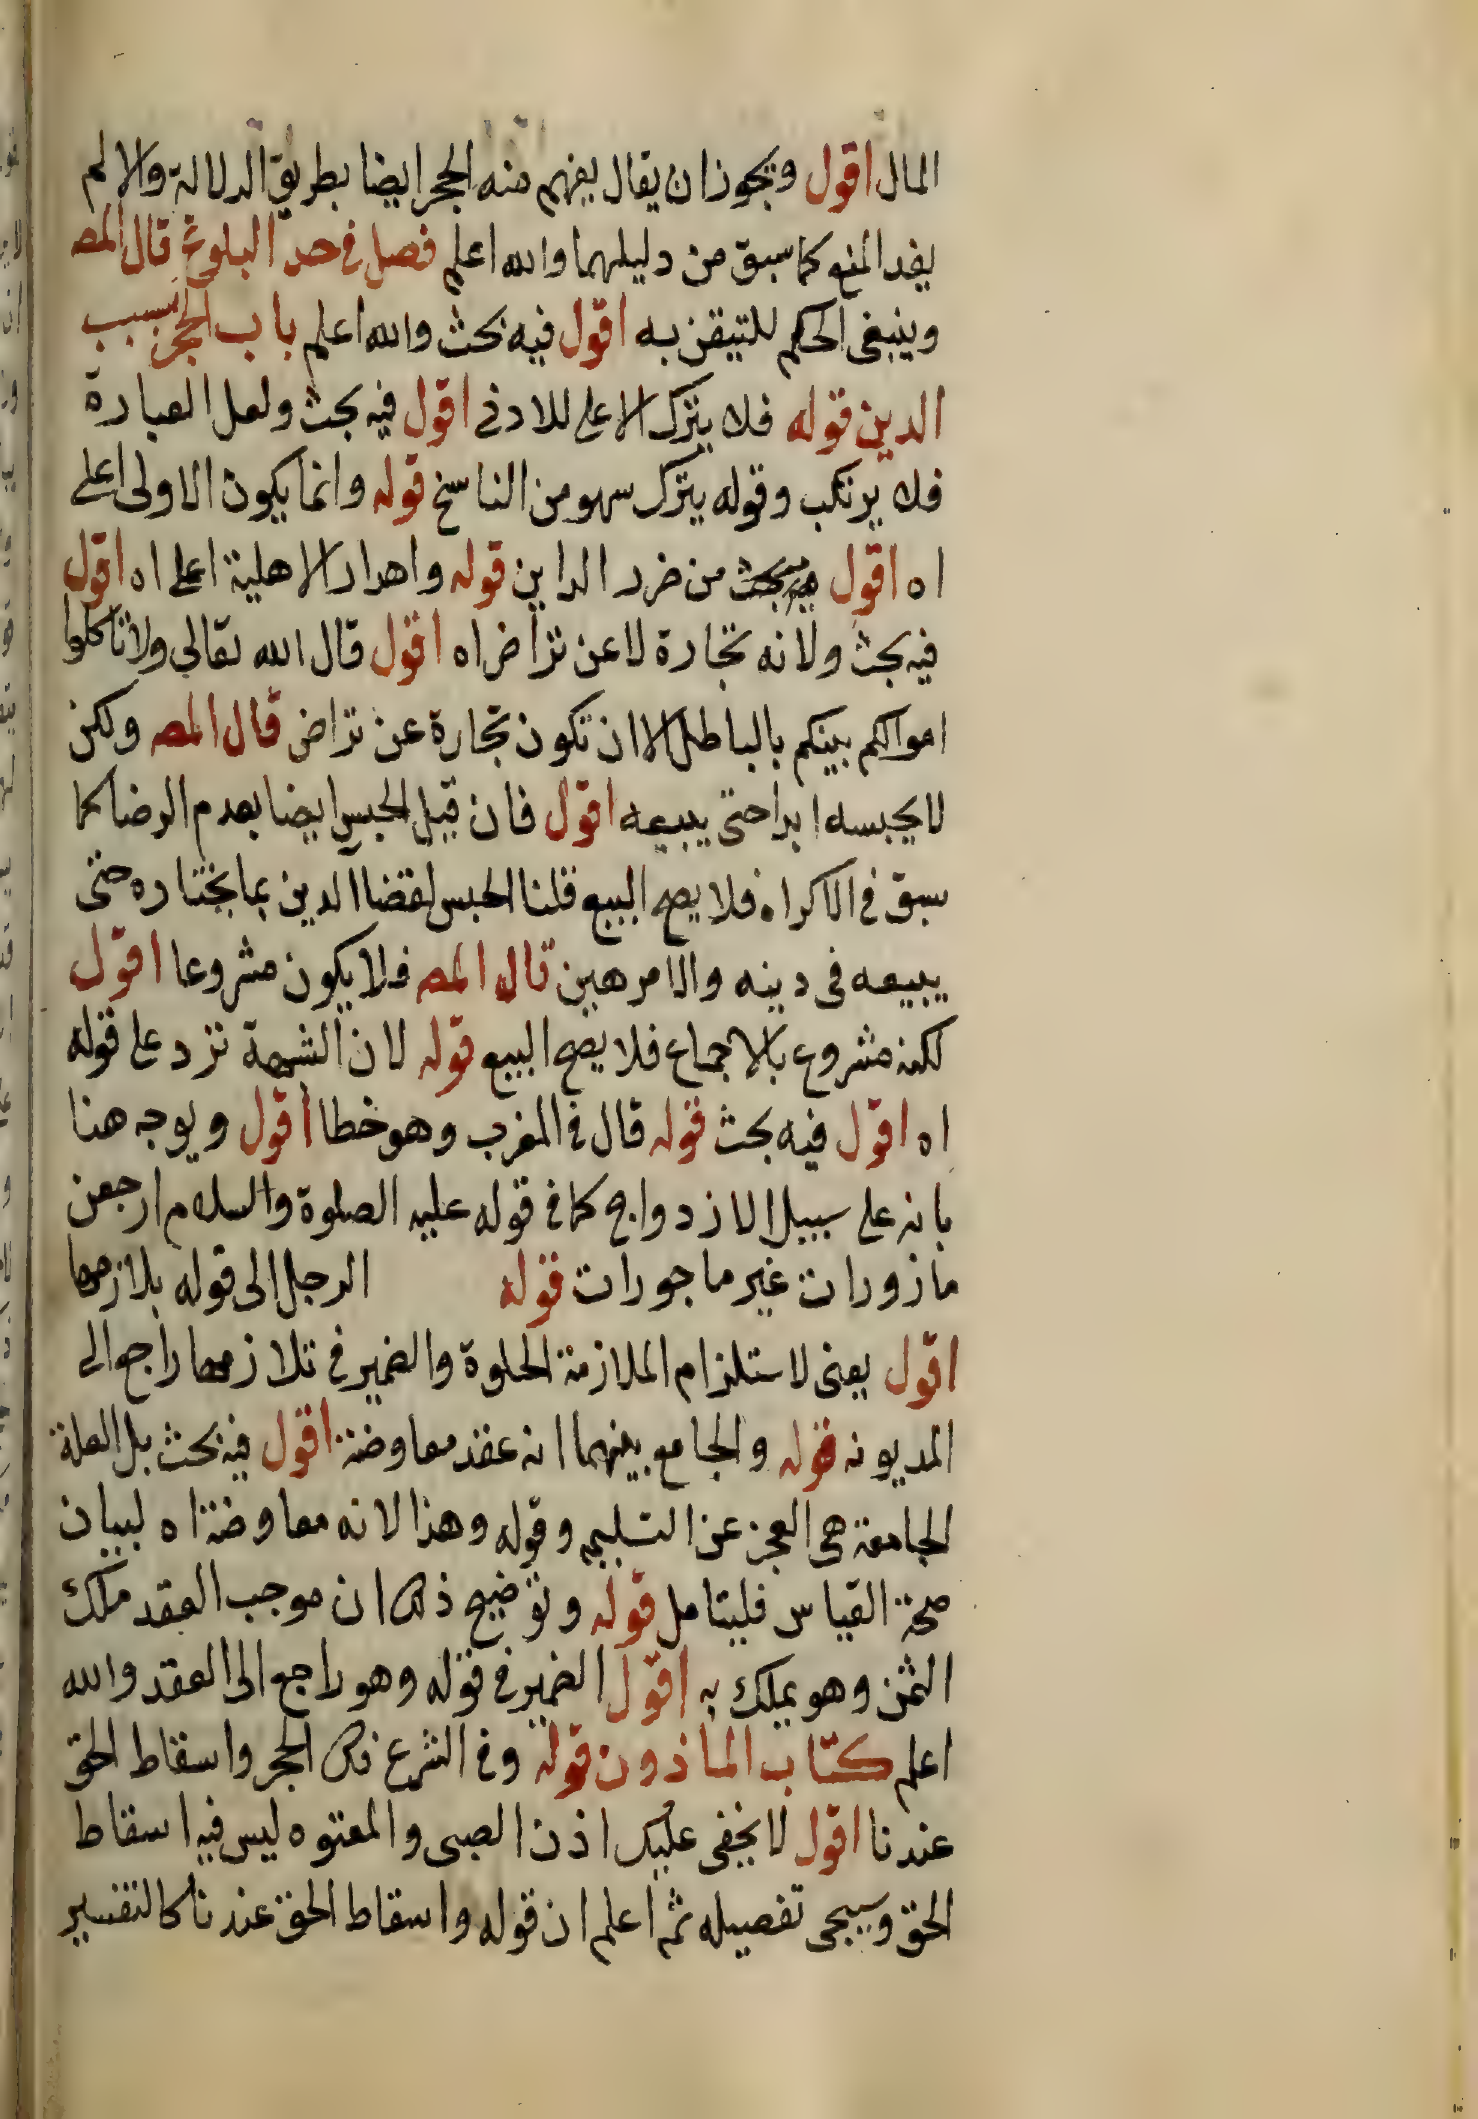 المال اقول ويجوز ان يقال يفهم منه الحجر ايضا بطريق الدلالة والا لم
يفد المنع كما سبق من دليلهما والله اعلم فصل في حد البلوغ قال المصـ
وينبغي الحكم للتيقن به اقول فيه بحث والله اعلم باب الحجر بسبب
الدين قوله فلا يترك الاعلى للادنى اقول فيه بحث ولعل العبارة
فلا يرتكب وقوله يترك سهو من الناسخ قوله وانما يكون الاولى اعلى
اه اقول فيه بحث من ضرر الداين قوله واهدار الاهلية اعلى اه اقول
فيه بحث ولانه تجارة لا عن تراض اه اقول قال الله تعالى ولا تاكلوا
اموالكم بينكم بالباطل الا ان تكون تجارة عن تراض قال المصـ ولكن
لا يحبسه ابدا حتى يبيعه اقول فان قيل الحبس ايضا يعدم الرضا كما
سبق في الاكراه فلا يصح البيع قلنا الحبس لقضا الدين بما يختاره حتى
يبيعه في دينه والامر هين قال المصـ فلا يكون مشروعا اقول
لكنه مشروع بالاجماع فلا يصح البيع قوله لان الشبهة ترد على قوله
اه اقول فيه بحث قوله قال في المغرب وهو خطا اقول ويوجه هنا
بانه على سبيل الازدواج كما في قوله عليه الصلوة والسلام ارجعن
مازورات غير ماجورات قوله الرجل الى قوله يلازمها
اقول يعنى لاستلزام الملازمة الخلوة والضمير في تلازمها راجع الى
المديونه قوله والجامع بينهما انه عقد معاوضة اقول فيه بحث بل العلة
الجامعة هي العجز عن التسليم وقوله وهذا لانه معاوضة اه لبيان
صحة القياس فليتامل قوله وتوضيح ذلك ان موجب العقد ملك
الثمن وهو يملك به اقول الضمير في قوله وهو راجع الى العقد والله
اعلم كتاب الماذون قوله وفي الشرع فك الحجر واسقاط الحق
عندنا اقول لا يخفى عليك اذن الصبى والمعتوه ليس فيه اسقاط
الحق وسيجى تفصيله ثم اعلم ان قوله واسقاط الحق عندنا كالتفسير